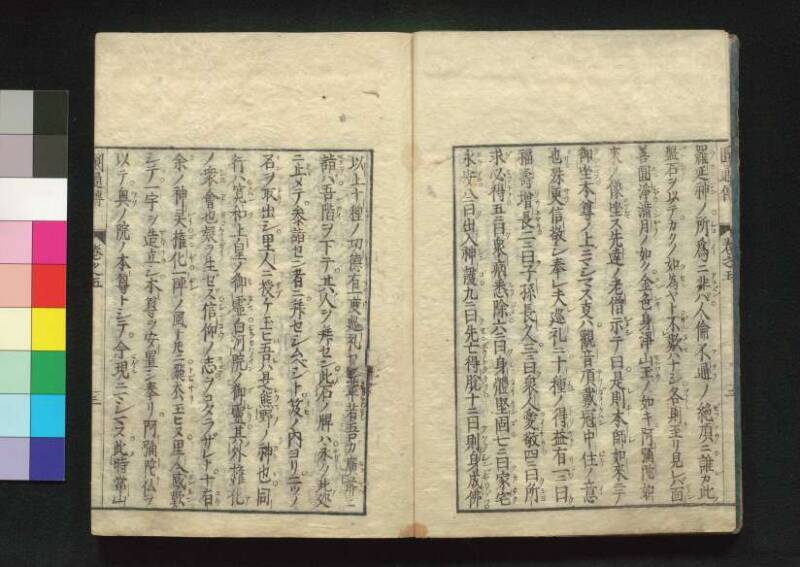 圓通傳 卷之五 三
羅正神ノ所爲ニ非ハ人倫不通ノ絶頂ニ誰カ此
盤石ヲ以テカクノ如為ヤト不數ハナシ各則至リ見レハ面
善圓淨滿月ノ如ク金色身淨山王ノ如キ阿彌陀如
來ノ像坐ス先達ノ老僧示テ曰是則本師如來ニテ
御坐本尊ノ上ニマシマス事ハ觀音頂戴冠中住ノ意
也殊更信敬シ奉レ夫巡礼ニ十種ノ得益有一ニ曰
福壽增長二ニ曰子孫長久三ニ曰衆人愛敬四ニ曰所
求必得五ニ曰衆病悉除六曰身體堅固七ニ曰家宅
永安八ニ曰出入神護九ニ曰先亡得脱十ニ曰則身成佛
以上十種ノ功德有
詣ハ吾階ヲ下テ其人ヲ拜セン此石ノ牌ハ永ク此処
ニ止メテ参詣セン者ニ拜セシムベシト笈ノ内ヨリ二ツノ
名ヲ取出シ里人ニ授ケ玉ヒ吾ハ是熊野ノ神也同
行ハ寛和上皇ノ御霊白河院ノ御霊其外権化
ノ衆會也疑ヲ生セス信仰ノ志ヲコタラザレト十有
余ノ神呆権化一陣ノ風ト共ニ
シテ一宇ヲ造立シ本尊ヲ安置シ奉リ阿彌陀仏ヲ
以テ奥ノ院ノ本尊トシテ今現ニマシマス此時當山
圓通傳 卷之五 三